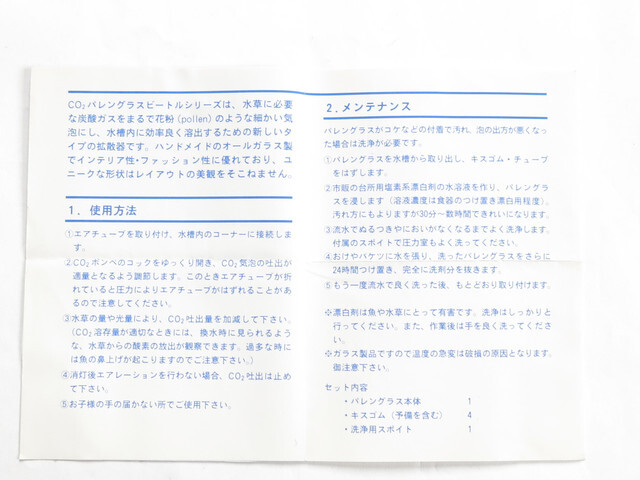 CO₂パレングラスビートルシリーズは、水草に必要
な炭酸ガスをまるで花粉(pollen)のような細かい気
泡にし、水槽内に効率良く溶出するための新しいタ
イプの拡散器です。ハンドメイドのオールガラス製
でインテリア性・ファッション性に優れており、ユ
ニークな形状はレイアウトの美観をそこねません。
1. 使用方法
①エアチューブを取り付け、水槽内のコーナーに接続しま
す。
②CO₂ボンベのコックをゆっくり開き、CO₂気泡の吐出が
適量となるよう調節します。このときエアチューブが折
れていると圧力によりエアチューブがはずれることがあ
るので注意してください。
③水草の量や光量により、CO₂吐出量を加減して下さい。
(CO₂溶存量が適切なときには、換水時に見られるよう
な、水草からの酸素の放出が観察できます。過多な時に
は魚の鼻上げが起こりますのでご注意下さい。)
④消灯後エアレーションを行わない場合、CO₂吐出は止め
て下さい。
⑤お子様の手の届かない所でご使用下さい。
2.メンテナンス
パレングラスがコケなどの付着で汚れ、泡の出方が悪くなっ
た場合は洗浄が必要です。
①パレングラスを水槽から取り出し、キスゴム・チューブ
をはずします。
②市販の台所用塩素系漂白剤の水溶液を作り、パレングラ
スを浸します(溶液濃度は食器のつけ置き漂白用程度)。
汚れ方にもよりますが30分〜数時間できれいになります。
③流水でぬるつきやにおいがなくなるまでよく洗浄します。
付属のスポイトで圧力室もよく洗ってください。
④おけやバケツに水を張り、洗ったパレングラスをさらに
24時間つけ置き、完全に洗剤分を抜きます。
⑤もう一度流水で良く洗った後、もとどおり取り付けます。
※漂白剤は魚や水草にとって有害です。洗浄はしっかりと
行ってください。また、作業後は手を良く洗ってくださ
い。
※ガラス製品ですので温度の急変は破損の原因となります。
御注意下さい。
セット内容
・パレングラス本体 1
・キスゴム(予備を含む) 4
・洗浄用スポイト 1